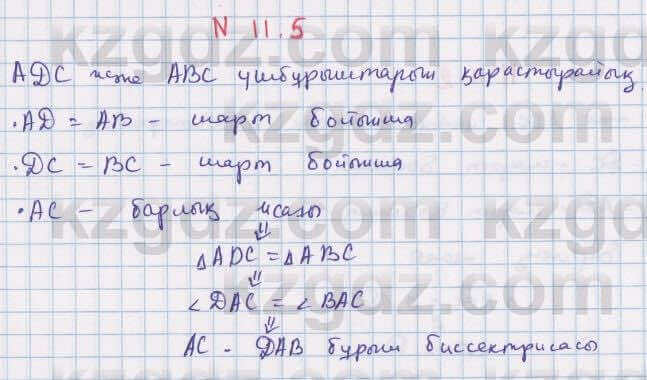 N 11.5
ADC және ABC үшбұрыштарын қарастырайық.
·AD = AB - шарт бойынша
·DC = BC - шарт бойынша
·AC - барлық
⇓
△ADC = △ABC
⇓
∠DAC = ∠BAC
⇓
AC - DAB бұрыш биссектрисасы
kzgdz.com